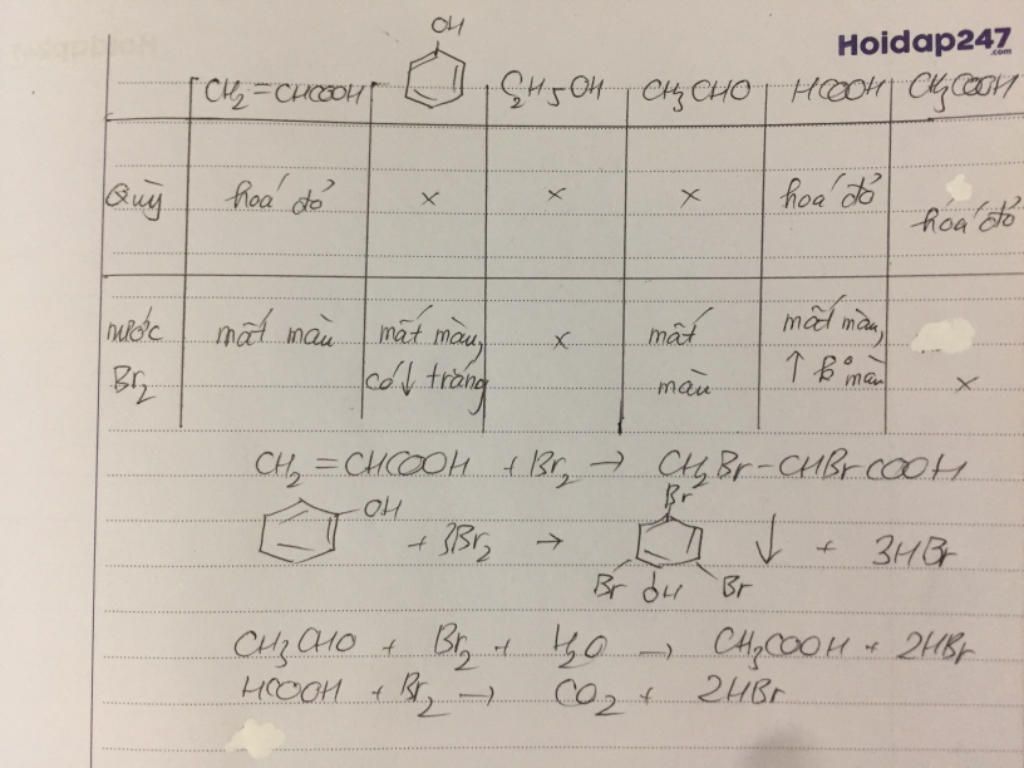 OH
Hoidap247
.com
CH2=CHCOOH C2H5OH CH3CHO HCOOH CH3COOH
Quỳ hoá đỏ x x x hoá đỏ hóa đỏ
nước Br2 mất màu mất màu, có↓ trắng x mất màu mất màu, ↑ k° màu x
CH2=CHCOOH + Br2 → CH2Br-CHBrCOOH
OH + 3Br2 → Br Br OH Br ↓ + 3HBr
CH3CHO + Br2 + H2O → CH3COOH + 2HBr
HCOOH + Br2 → CO2 + 2HBr